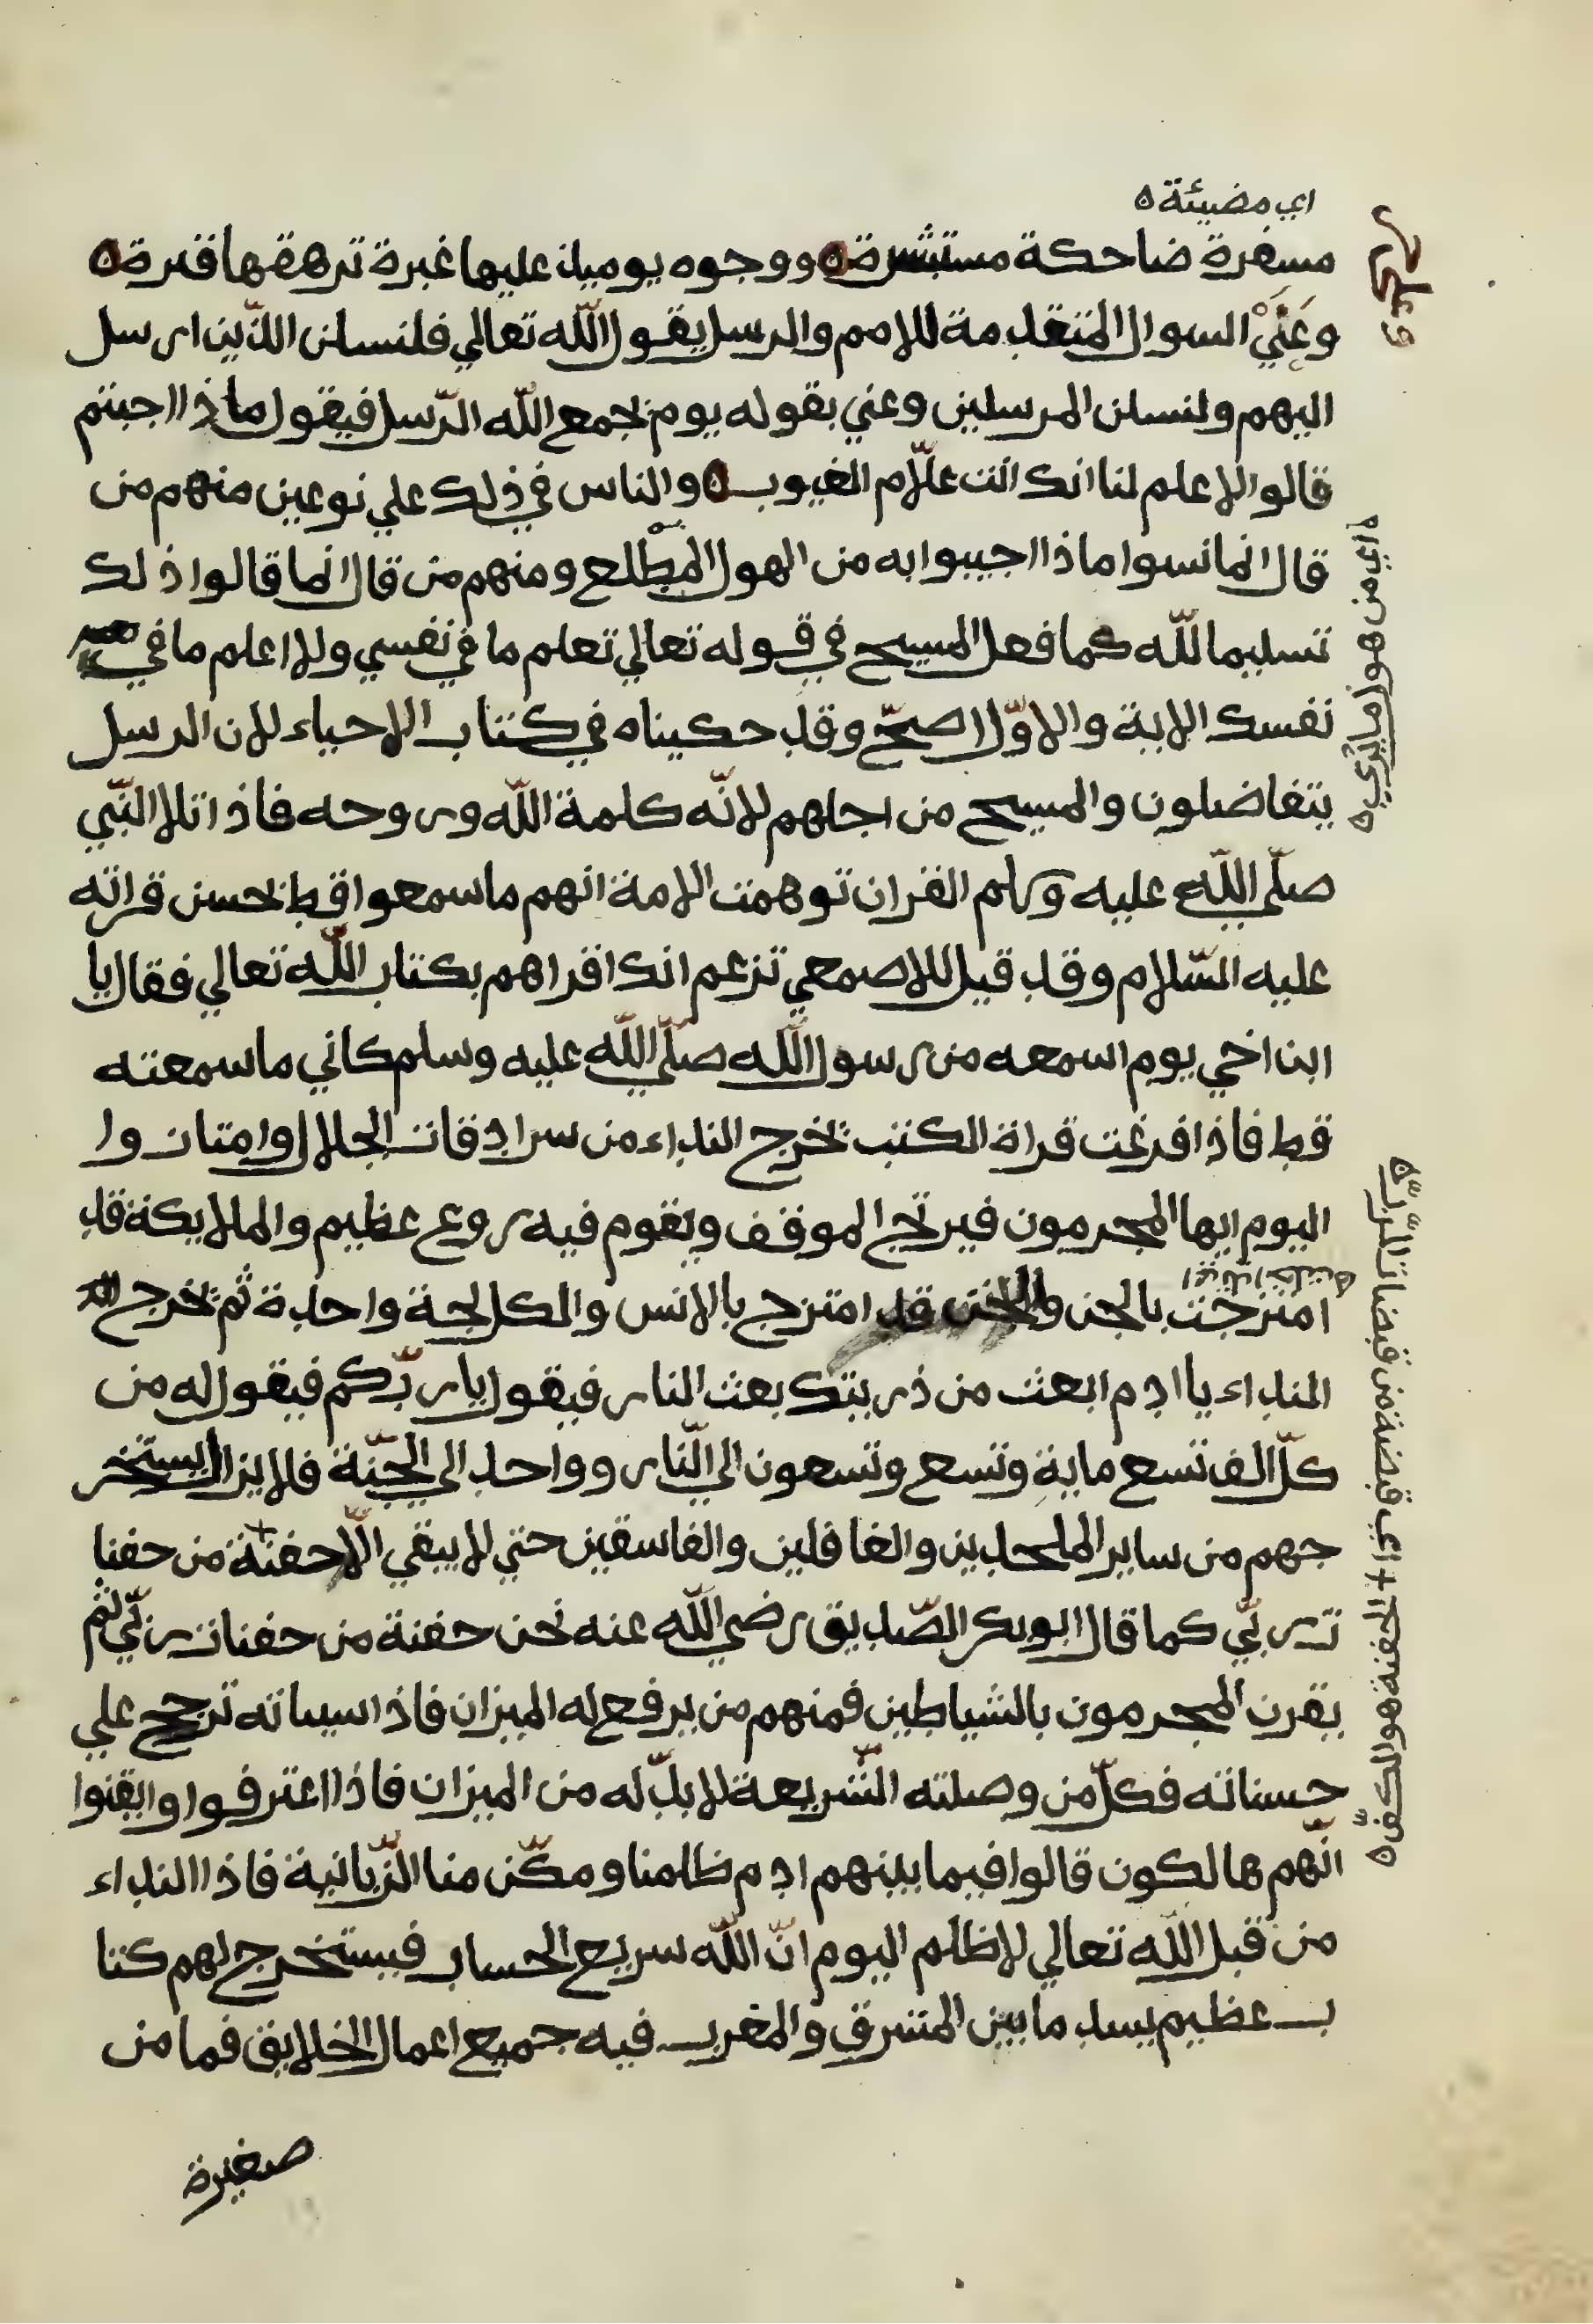 اي مضيئة ه
مسفرة ضاحكة مستبشرة ه ووجوه يوميذ عليها غبرة ترهقها قترة ه
وعني السوال المتقدمة للامم والرسل يقول الله تعالي فلنسلن الذين ارسل
اليهم ولنسلن المرسلين وعني بقوله يوم يجمع الله الرسل فيقول ماذا اجبتم
قالوا لا علم لنا انك انت علام الغيوب ه والناس في ذلك علي نوعين منهم من
قال انما نسوا ماذا اجيبوا به من الهول المطلع ومنهم من قال انما قالوا ذلك
تسليما لله كما فعل المسيح في قوله تعالي تعلم ما في نفسي ولا اعلم ما في
نفسك الاية والاول اصح وقد حكيناه في كتاب الاحياء لان الرسل
يتفاضلون والمسيح من اجلهم لانه كلمة الله وروحه فاذا تلا النبي
صلي الله عليه وسلم القران توهمت الامة انهم ما سمعوا قط بحسن قراته
عليه السلام وقد قيل للاصمعي تزعم انك اقراهم بكتاب الله تعالي فقال يا
ابن اخي يوم اسمعه من رسول الله صلي الله عليه وسلم كاني ما سمعته
قط فاذا فرغت قراة الكتب تخرج النداء من سرادقات الجلال وامتازوا
اليوم ايها المجرمون فيرتج الموقف ويقوم فيه روع عظيم والملايكة قد
امتزجت بالجن والجن قد امتزج بالانس والكل لجة واحدة ثم تخرج
النداء يا ادم ابعث من ذريتك بعث النار فيقول يا ربكم فيقول له من
كل الف تسع ماية وتسع وتسعون الي النار وواحد الي الجنة فلا يزال يستخر
جهم من ساير الملحدين والغافلين والفاسقين حتي لا يبقي الا حفنة من حفنا
ت ربي كما قال ابو بكر الصديق رضي الله عنه نحن حفنة من حفنات ربي ثم
يقرن المجرمون بالشياطين فمنهم من يرفع له الميزان فاذا سيياته ترجح علي
حسناته فكل من وصلته الشريعة لا بد له من الميزان فاذا اعترفوا وايقنوا
انهم هالكون قالوا فيما بينهم ادم ظلمنا ومكن منا الزبانية فاذا النداء
من قبل الله تعالي لا ظلم اليوم ان الله سريع الحساب فيستخرج لهم كتا
ب عظيم يسد ما بين المشرق والمغرب فيه جميع اعمال الخلايق فما من
صغيرة
اي من هول ما يري ه
الحفنة هو الكف ه
اي قبضة من قبضات الرب ه